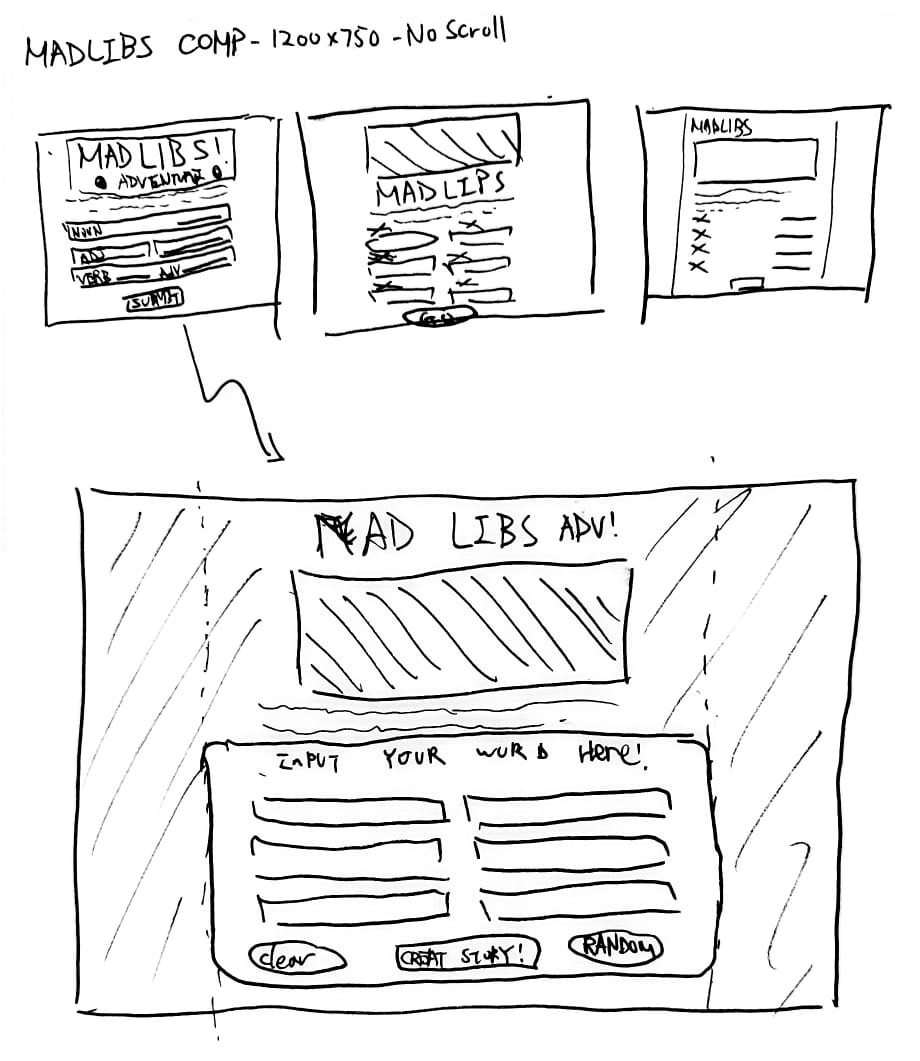 MADLIBS COMP - 1200x750 - No Scroll
MAD LIBS!
ADVENTURE
NOUN
ADJ
VERB ADV
SUBMIT
MADLIPS
MADLIBS
MAD LIBS ADV!
INPUT YOUR WORD Here!
Clear
CREAT STORY!
RANDOM